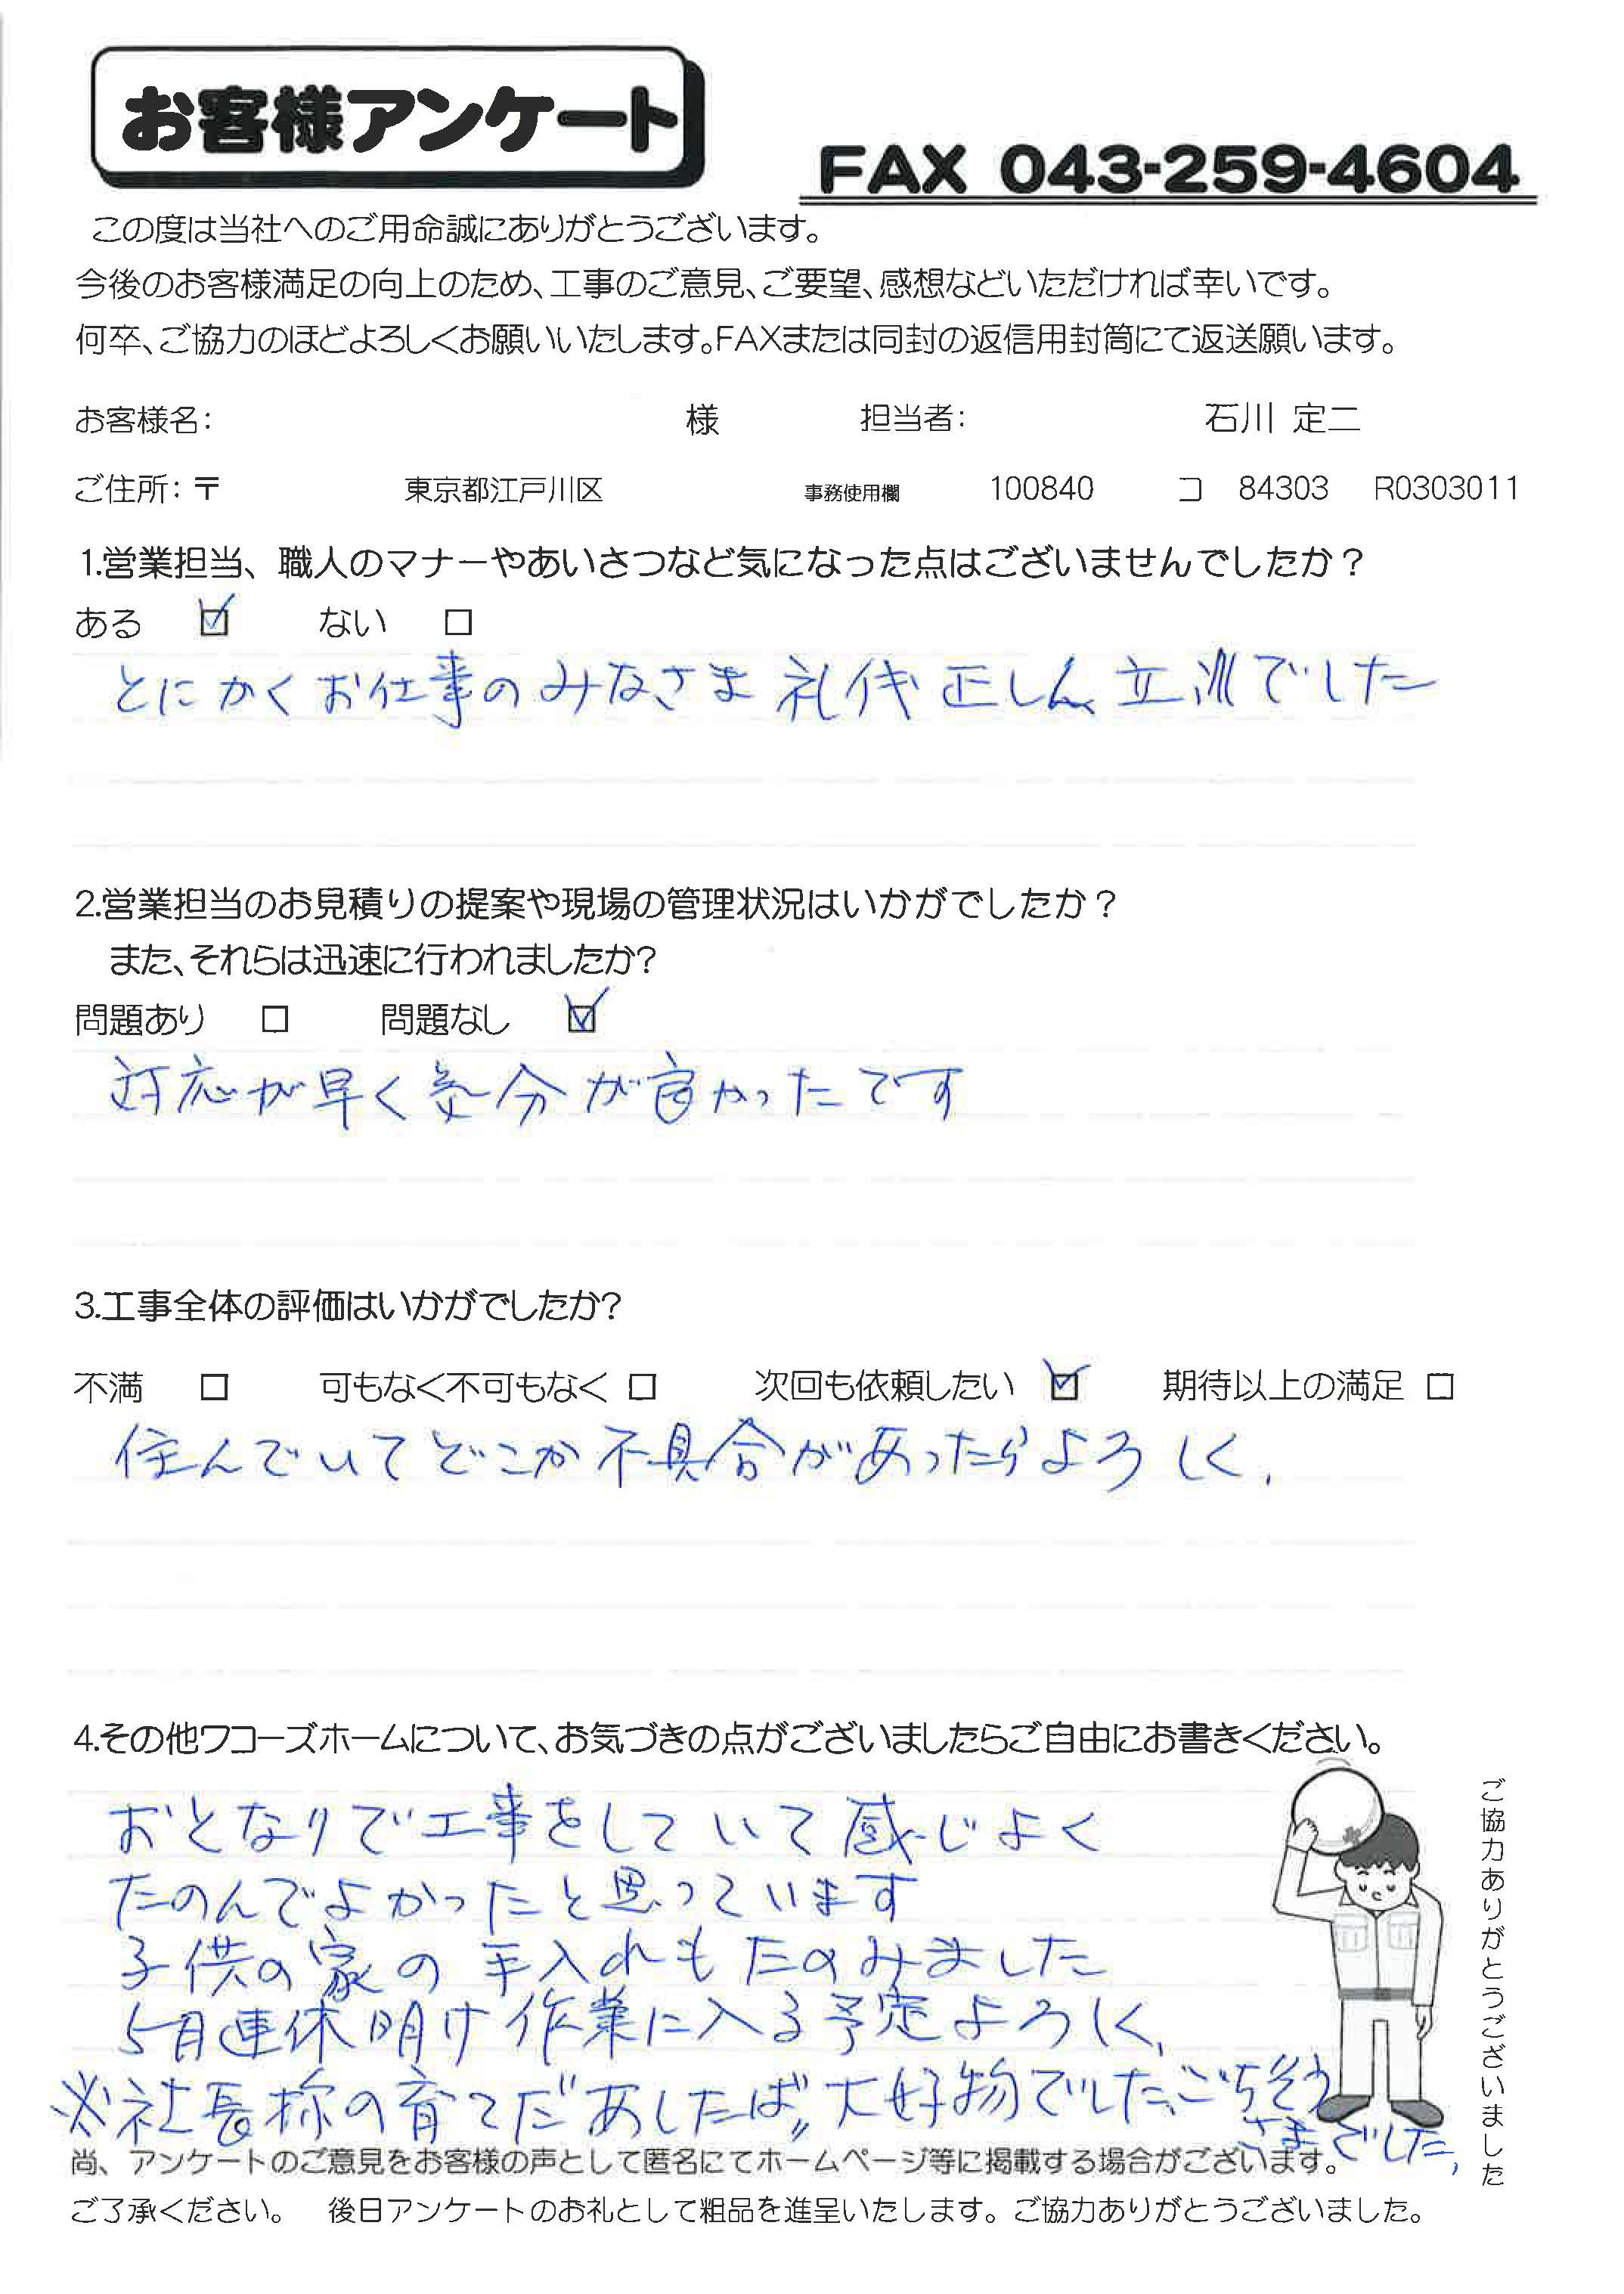 お客様アンケート
FAX 043-259-4604
この度は当社へのご用命誠にありがとうございます。
今後のお客様満足の向上のため、工事のご意見、ご要望、感想などいただければ幸いです。
何卒、ご協力のほどよろしくお願いいたします。FAXまたは同封の返信用封筒にて返送願います。
お客様名： 様 担当者： 石川 定二
ご住所：〒 東京都江戸川区 事務使用欄 100840 コ 84303 R0303011
1.営業担当、職人のマナーやあいさつなど気になった点はございませんでしたか？
ある ☑ ない □
とにかくお仕事のみなさま礼儀正しく、立派でした
2.営業担当のお見積りの提案や現場の管理状況はいかがでしたか？
また、それらは迅速に行われましたか?
問題あり □ 問題なし ☑
対応が早く気分が良かったです
3.工事全体の評価はいかがでしたか?
不満 □ 可もなく不可もなく □ 次回も依頼したい ☑ 期待以上の満足 □
住んでいてどこか不具合があったらよろしく、
4.その他ワコーズホームについて、お気づきの点がございましたらご自由にお書きください。
おとなりで工事をしていて感じよく
たのんでよかったと思っています
子供の家の手入れもたのみました
5月連休明け作業に入る予定よろしく、
※社長様の育てだ"あしたば〃大好物でした、ごちそう
さまでした、
尚、アンケートのご意見をお客様の声として匿名にてホームページ等に掲載する場合がございます。
ご了承ください。 後日アンケートのお礼として粗品を進呈いたします。ご協力ありがとうございました。
ご協力ありがとうございました